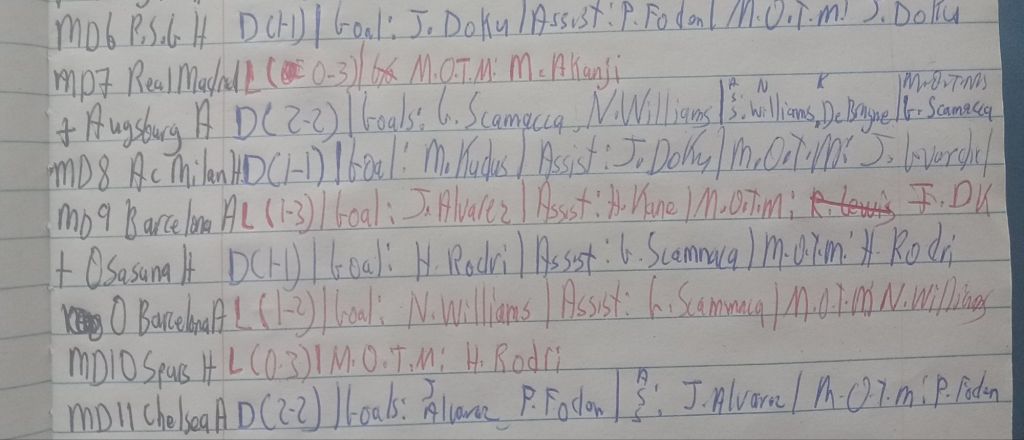 MD6 P.S.G H D(1-1) | Goal: J. Doku | Assist: P. Foden | M.O.T.M: J. Doku
MD7 Real Madrid L (0-3) | M.O.T.M: M. Akanji
+ Augsburg A D(2-2) | Goals: G. Scamacca, N. Williams | A.S: N Williams, K De Bruyne | M.O.T.M: G. Scamacca
MD8 Ac Milan H D(1-1) | Goal: M. Kudus | Assist: J. Doku | M.O.T.M: J. Gvardiol
MD9 Barcelona A L (1-3) | Goal: J. Alvarez | Assist: H. Kane | M.O.T.M: R. Lewis F. DK
+ Osasuna H D(1-1) | Goal: H. Rodri | Assist: G. Scammaca | M.O.T.M: H. Rodri
O Barcelona A L (1-2) | Goal: N. Williams | Assist: G. Scammaca | M.O.T.M N. Williams
MD10 Spurs H L (0-3) | M.O.T.M: H. Rodri
MD11 Chelsea A D(2-2) | Goals: J Alvarez P. Foden | ASS: J. Alvarez | M.O.T.M: P. Foden